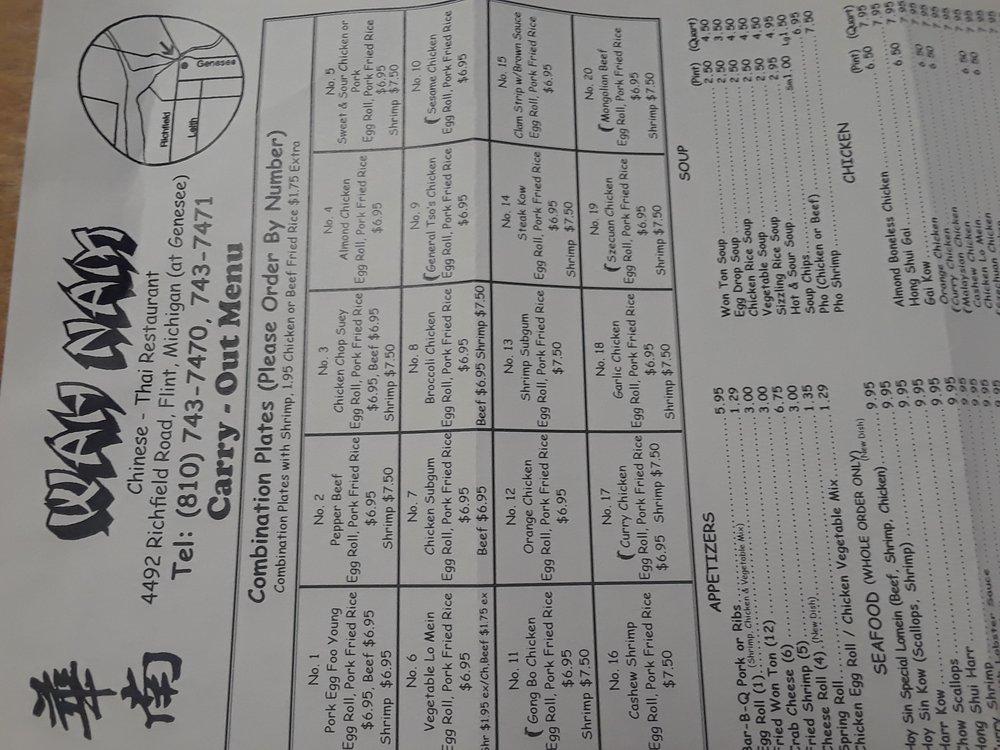 華南
WAH NAM
Chinese - Thai Restaurant
4492 Richfield Road, Flint, Michigan (at Genesee)
Tel: (810) 743-7470, 743-7471
Carry - Out Menu
Genesee
Richfield
Leith
Combination Plates (Please Order By Number)
Combination Plates with Shrimp, 1.95 Chicken or Beef Fried Rice $1.75 Extra
No. 1
Pork Egg Foo Young
Egg Roll, Pork Fried Rice
$6.95, Beef $6.95
Shrimp $6.95
No. 2
Pepper Beef
Egg Roll, Pork Fried Rice
$6.95
Shrimp $7.50
No. 3
Chicken Chop Suey
Egg Roll, Pork Fried Rice
$6.95, Beef $6.95
Shrimp $7.50
No. 4
Almond Chicken
Egg Roll, Pork Fried Rice
$6.95
No. 5
Sweet & Sour Chicken or
Pork
Egg Roll, Pork Fried Rice
$6.95
Shrimp $7.50
No. 6
Vegetable Lo Mein
Egg Roll, Pork Fried Rice
$6.95
Shr $1.95 ex/Ch,Beef $1.75 ex
No. 7
Chicken Subgum
Egg Roll, Pork Fried Rice
$6.95
Beef $6.95
No. 8
Broccoli Chicken
Egg Roll, Pork Fried Rice
$6.95
Beef $6.95 Shrimp $7.50
No. 9
(General Tso's Chicken
Egg Roll, Pork Fried Rice
$6.95
No. 10
(Sesame Chicken
Egg Roll, Pork Fried Rice
$6.95
No. 11
(Gong Bo Chicken
Egg Roll, Pork Fried Rice
$6.95
Shrimp $7.50
No. 12
Orange Chicken
Egg Roll, Pork Fried Rice
$6.95
No. 13
Shrimp Subgum
Egg Roll, Pork Fried Rice
$7.50
No. 14
Steak Kow
Egg Roll, Pork Fried Rice
$6.95
Shrimp $7.50
No. 15
Clam Strip w/Brown Sauce
Egg Roll, Pork Fried Rice
$6.95
No. 16
Cashew Shrimp
Egg Roll, Pork Fried Rice
$7.50
No. 17
(Curry Chicken
Egg Roll, Pork Fried Rice
$6.95 Shrimp $7.50
No. 18
Garlic Chicken
Egg Roll, Pork Fried Rice
$6.95
Shrimp $7.50
No. 19
(Szecuan Chicken
Egg Roll, Pork Fried Rice
$6.95
Shrimp $7.50
No. 20
(Mongolian Beef
Egg Roll, Pork Fried Rice
$6.95
Shrimp $7.50
APPETIZERS
Bar-B-Q Pork or Ribs 5.95
Egg Roll (1) (Shrimp, Chicken & Vegetable Mix) 1.29
Fried Won Ton (12) 3.00
Crab Cheese (6) 3.00
Fried Shrimp (5) 6.75
Cheese Roll (4) (New Dish) 3.00
Spring Roll 1.35
Chicken Egg Roll / Chicken Vegetable Mix 1.29
SEAFOOD (WHOLE ORDER ONLY)
Hoy Sin Special Lomein (Beef, Shrimp, Chicken) (New Dish) 9.95
Hoy Sin Kow (Scallops, Shrimp) 9.95
Harr Kow 9.95
Chow Scallops 9.95
Hong Shui Harr 9.95
Lobster Sauce 9.95
SOUP
(Pint) (Quart)
Won Ton Soup 2.50 4.50
Egg Drop Soup 2.50 3.50
Chicken Rice Soup 2.50 4.50
Vegetable Soup 2.50 4.50
Sizzling Rice Soup 2.50 4.50
Hot & Sour Soup 2.95 4.95
Soup Chips Sm1.00 Lg1.50
Pho (Chicken or Beef) 6.95
Pho Shrimp 7.50
CHICKEN
(Pint) (Quart)
Almond Boneless Chicken 6.50 7.95
Hong Shui Gai 7.95
Gai Kow 6.50 7.95
Orange Chicken 7.95
(Curry Chicken 6.50 7.95
(Malaysian Chicken 6.50 7.95
Cashew Chicken 6.50 7.95
Chicken Lo Mein 7.95
Szechuan Chicken